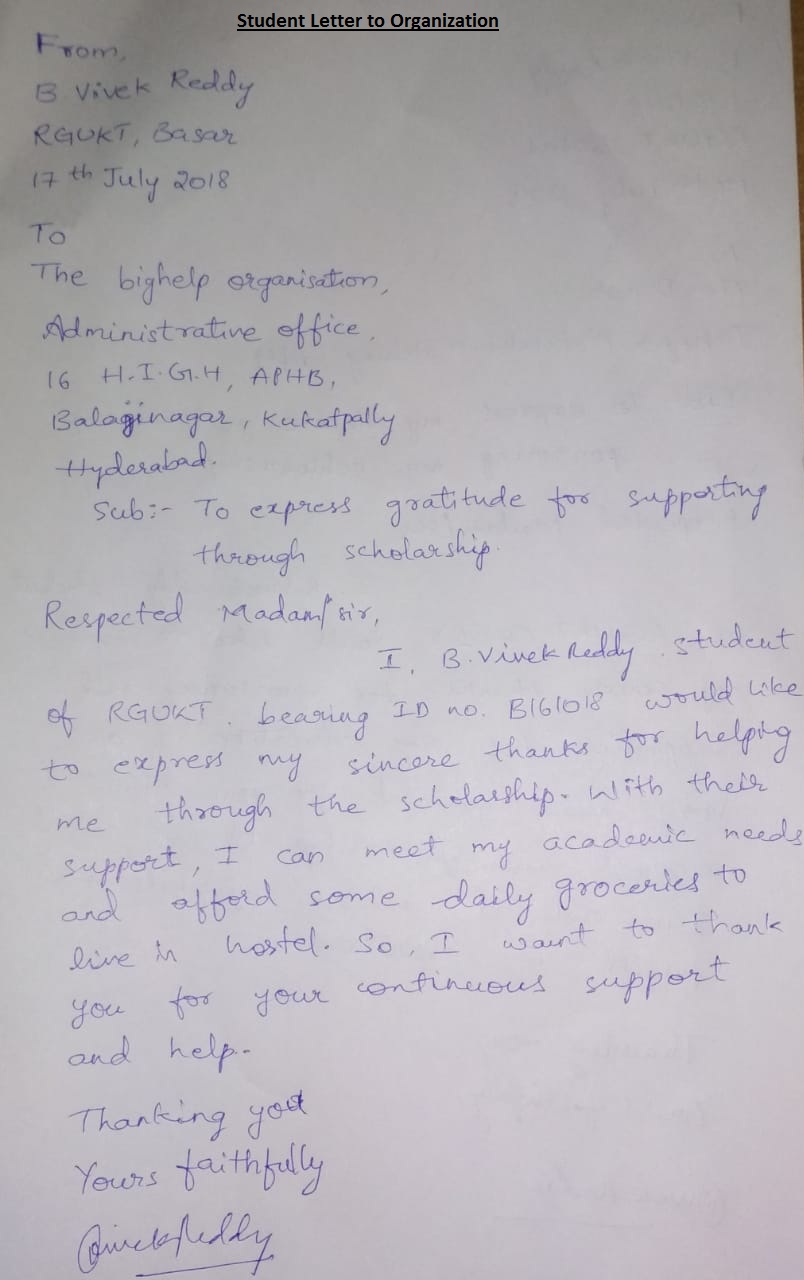 Student Letter to Organization
From,
B Vivek Reddy
RGUKT, Basar
17th July 2018
To
The bighelp organisation,
Administrative office,
16 H.I.G.H, APHB,
Balajinagar, Kukatpally
Hyderabad.
Sub:- To express gratitude for supporting
through scholarship.
Respected Madam/sir,
I, B. Vivek Reddy. student
of RGUKT. bearing ID no. B161018 would like
to express my sincere thanks for helping
me through the scholarship. With their
support, I can meet my academic needs
and afford some daily groceries to
live in hostel. So, I want to thank
you for your continuous support
and help.
Thanking you
Yours faithfully
VivekReddy